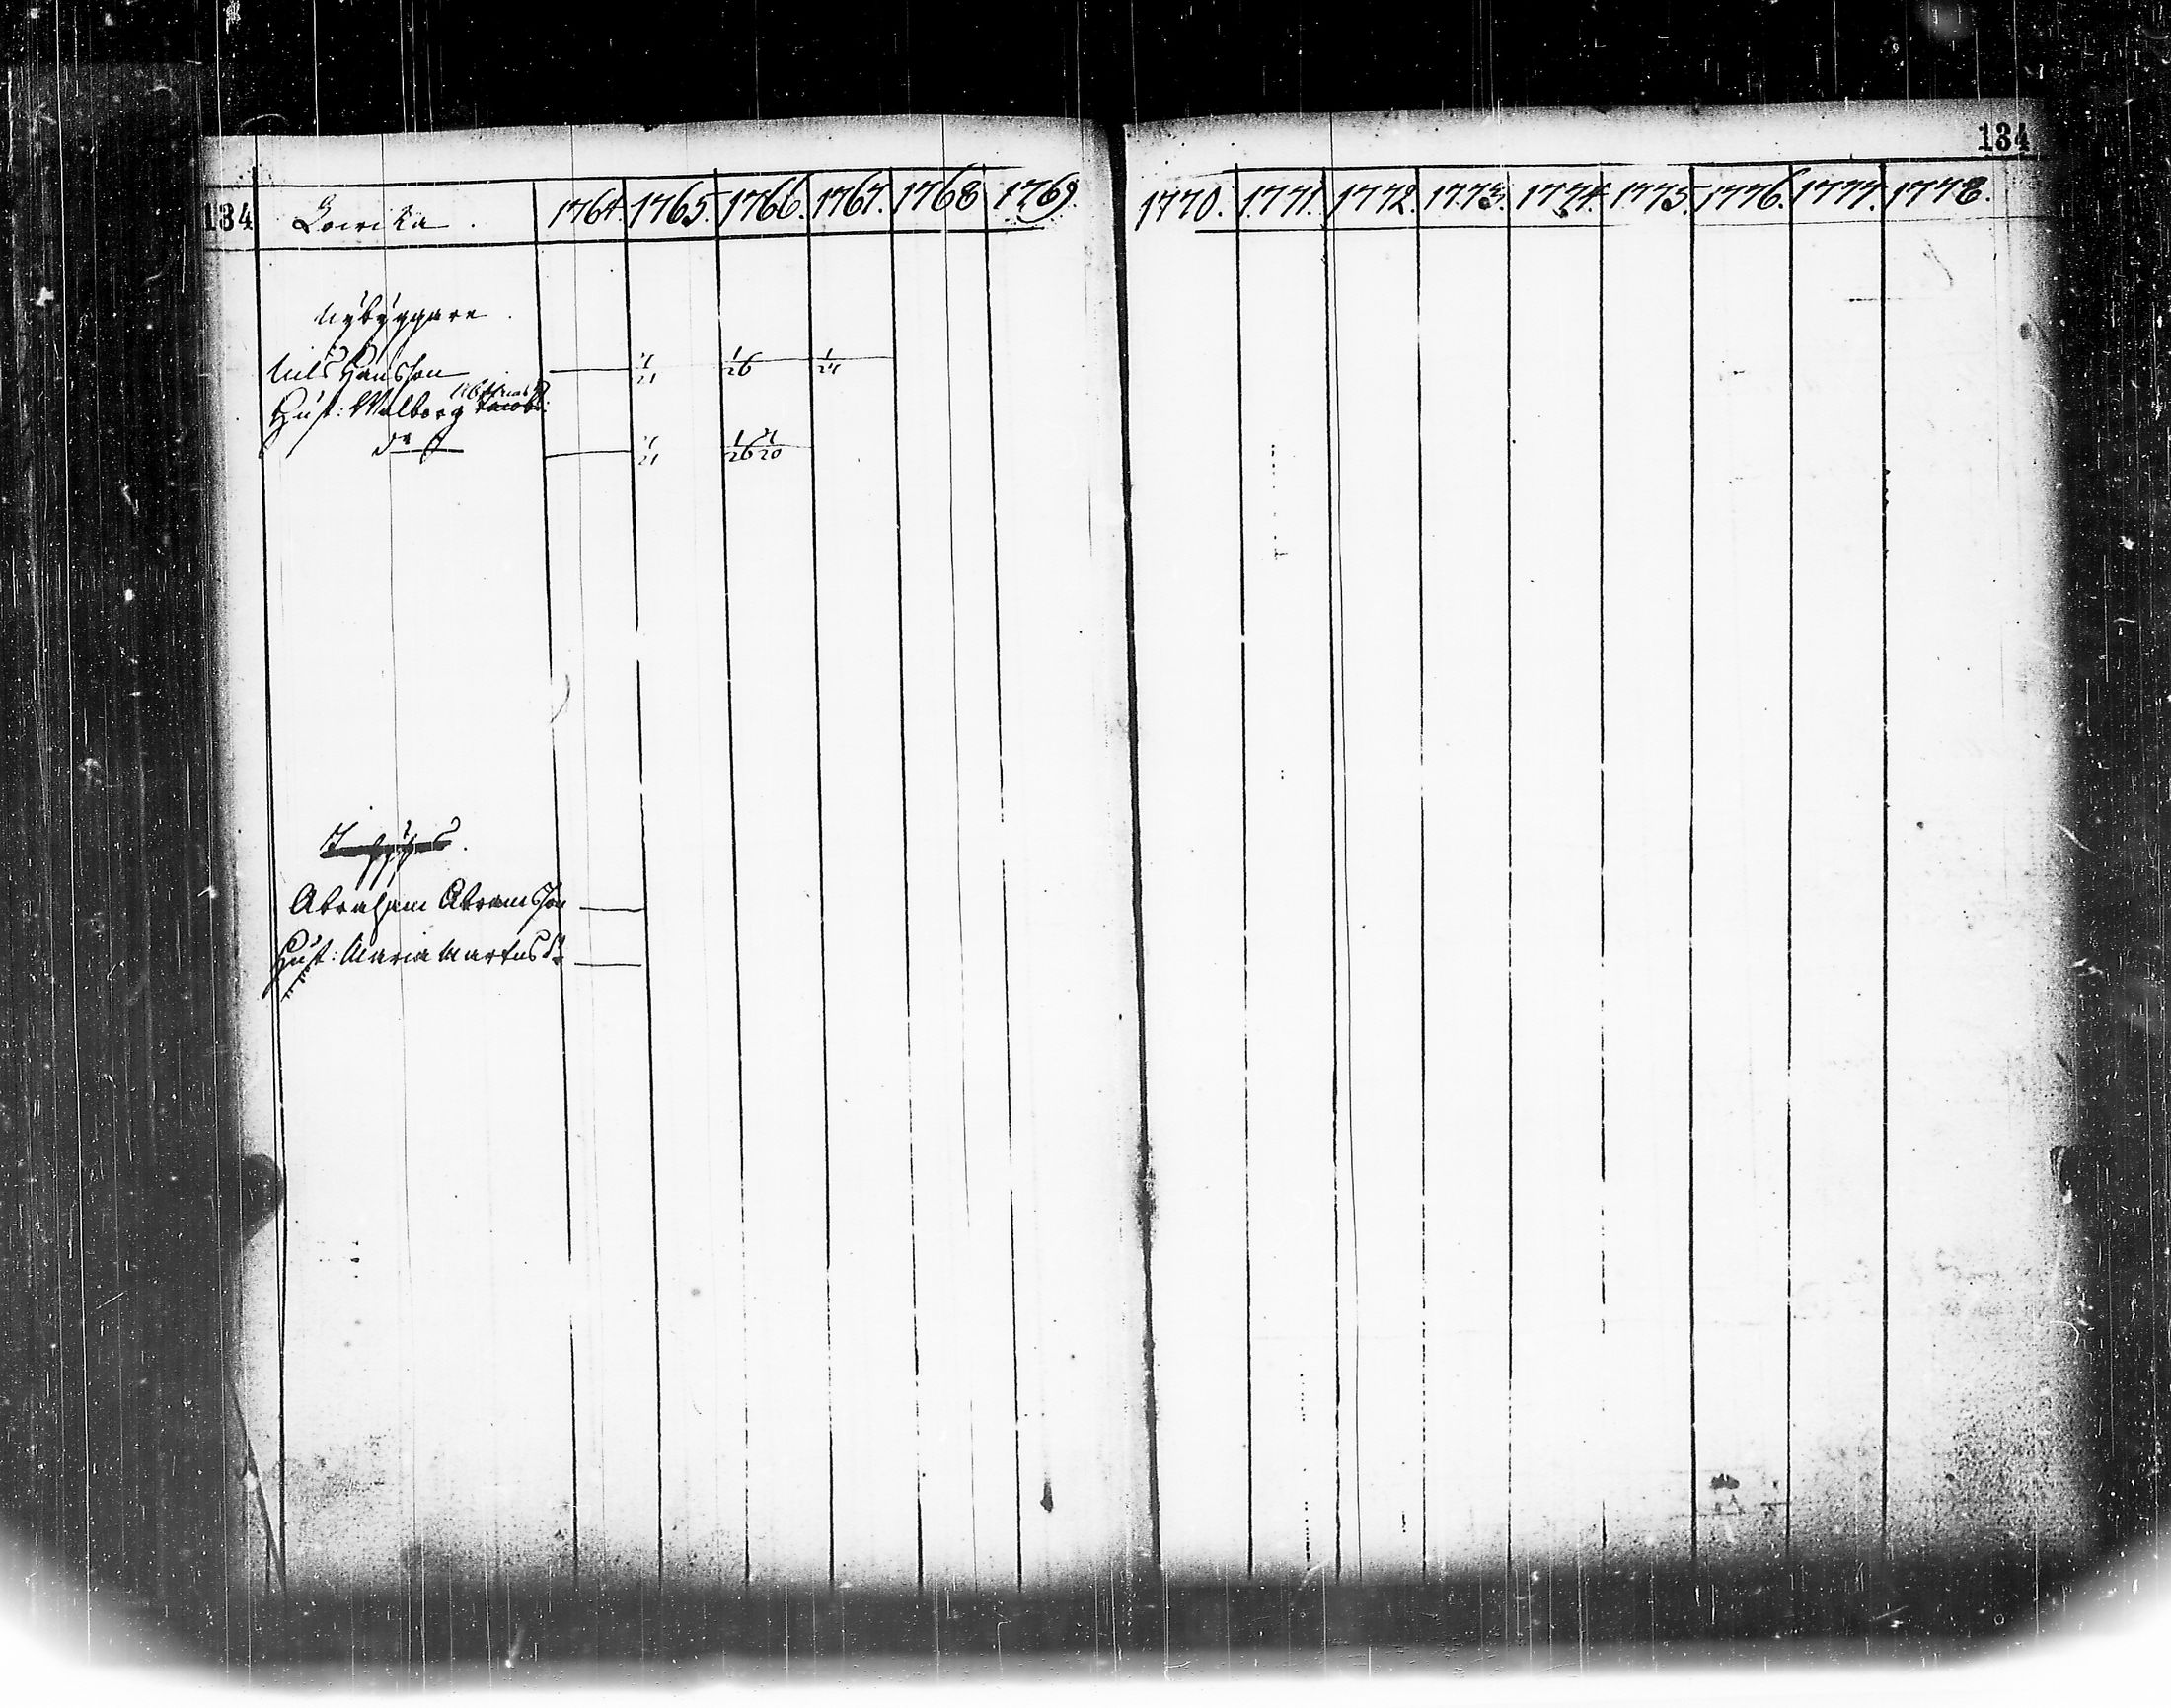 134
134 Lowika. 1764. 1765. 1766. 1767. 1768 1769 1770. 1771. 1772. 1773. 1774. 1775. 1776. 1777. 1778.
Nybyggare.
Nils Hansson 1/21 1/26 1/21
Hust: Walborg Jacobs:
dr 1/21 1/26 1/20
Abraham Abramsson
Hust: Maria Martes dr